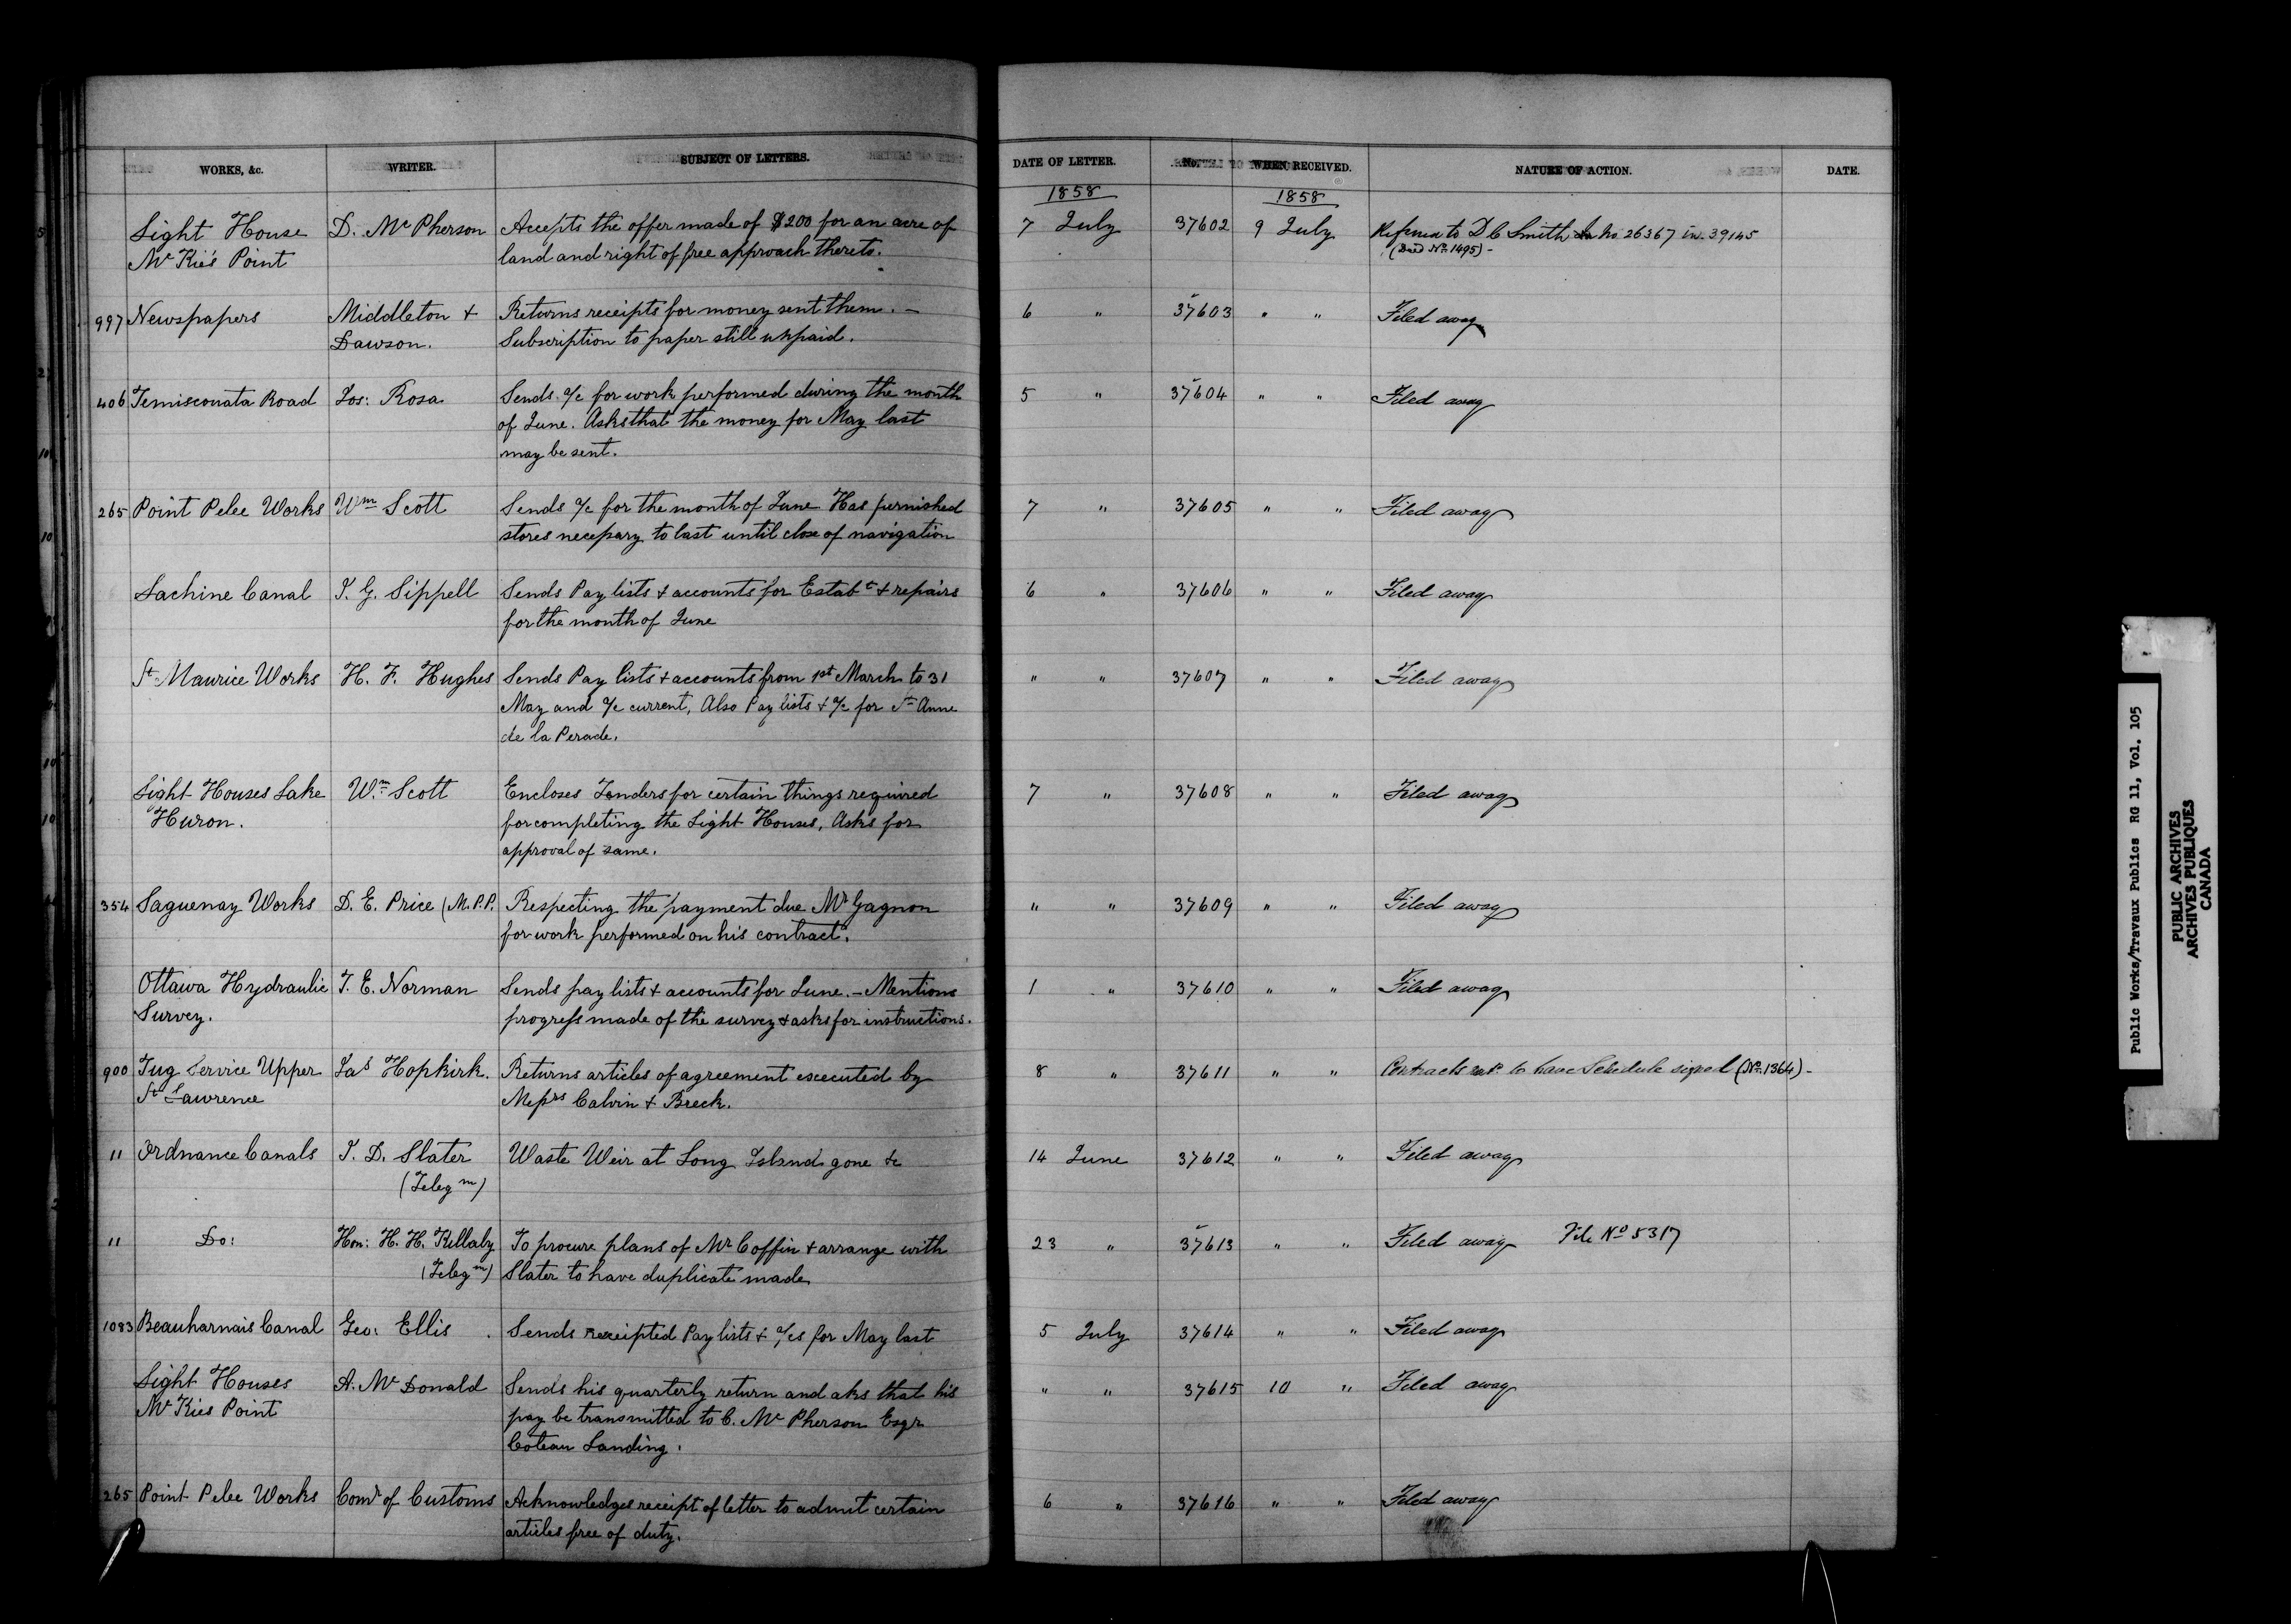 WORKS, &c. WRITER. SUBJECT OF LETTERS. DATE OF LETTER. No. WHEN RECEIVED. NATURE OF ACTION. DATE.
1858 1858
Light House D. McPherson Accepts the offer made of $200 for an acre of 7 July 37602 9 July Referred to D C Smith No 26367 in. 39145
McKie's Point land and right of free approach thereto. (Deed No 1495) -
997 Newspapers Middleton + Returns receipts for money sent them. - 6 " 37603 " " Filed away
Dawson. Subscription to paper still unpaid.
406 Temisconata Road Jos: Rosa Sends a/c for work performed during the month 5 " 37604 " " Filed away
of June. Asks that the money for May last
may be sent.
265 Point Pelee Works Wm Scott Sends a/c for the month of June Has furnished 7 " 37605 " " Filed away
stores necessary to last until close of navigation
Lachine Canal J. G. Sippell Sends Pay lists + accounts for Estabt + repairs 6 " 37606 " " Filed away
for the month of June
St Maurice Works H. F. Hughes Sends Pay lists + accounts from 1st March to 31 " " 37607 " " Filed away
May and a/c current, Also Pay lists + a/c for St Anne
de la Perade.
Light Houses Lake Wm Scott Encloses Tenders for certain things required 7 " 37608 " " Filed away
Huron. for completing the Light Houses, Asks for
approval of same.
354 Saguenay Works D. E. Price (M.P.P. Respecting the payment due Mr Gagnon " " 37609 " " Filed away
for work performed on his contract.
Ottawa Hydraulic T. E. Norman Sends pay lists + accounts for June. - Mentions 1 " 37610 " " Filed away
Survey. progress made of the survey + asks for instructions.
900 Tug Service Upper Jas Hopkirk. Returns articles of agreement executed by 8 " 37611 " " Contracts to have Schedule signed (No 1364) -
St Lawrence Messrs Calvin + Breck.
11 Ordnance Canals J. D. Slater Waste Weir at Long Island gone &c 14 June 37612 " " Filed away
(Telegm)
11 Do: Hon: H. H. Killaly To procure plans of Mr Coffin + arrange with 23 " 37613 " " Filed away File No 5317
(Telegm) Slater to have duplicate made
1083 Beauharnais Canal Geo: Ellis . Sends receipted Pay lists + a/cs for May last 5 July 37614 " " Filed away
Light Houses A. McDonald Sends his quarterly return and aks that his " " 37615 10 " Filed away
McKies Point pay be transmitted to C. McPherson Esqr
Coteau Landing.
265 Point Pelee Works Comr of Customs Acknowledges receipt of letter to admit certain 6 " 37616 " " Filed away
articles free of duty.
Public Works/Travaux Publics RG 11, Vol. 105
PUBLIC ARCHIVES
ARCHIVES PUBLIQUES
CANADA